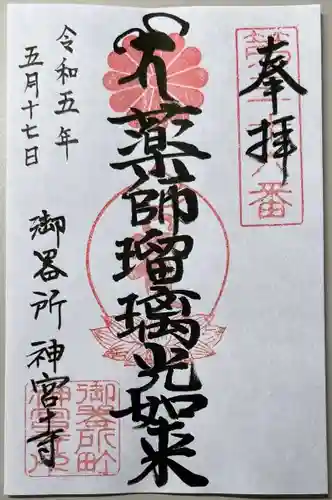 奉拝
薬師瑠璃光如来
令和五年
五月十七日
御器所 神宮寺
御器所町
神宮寺